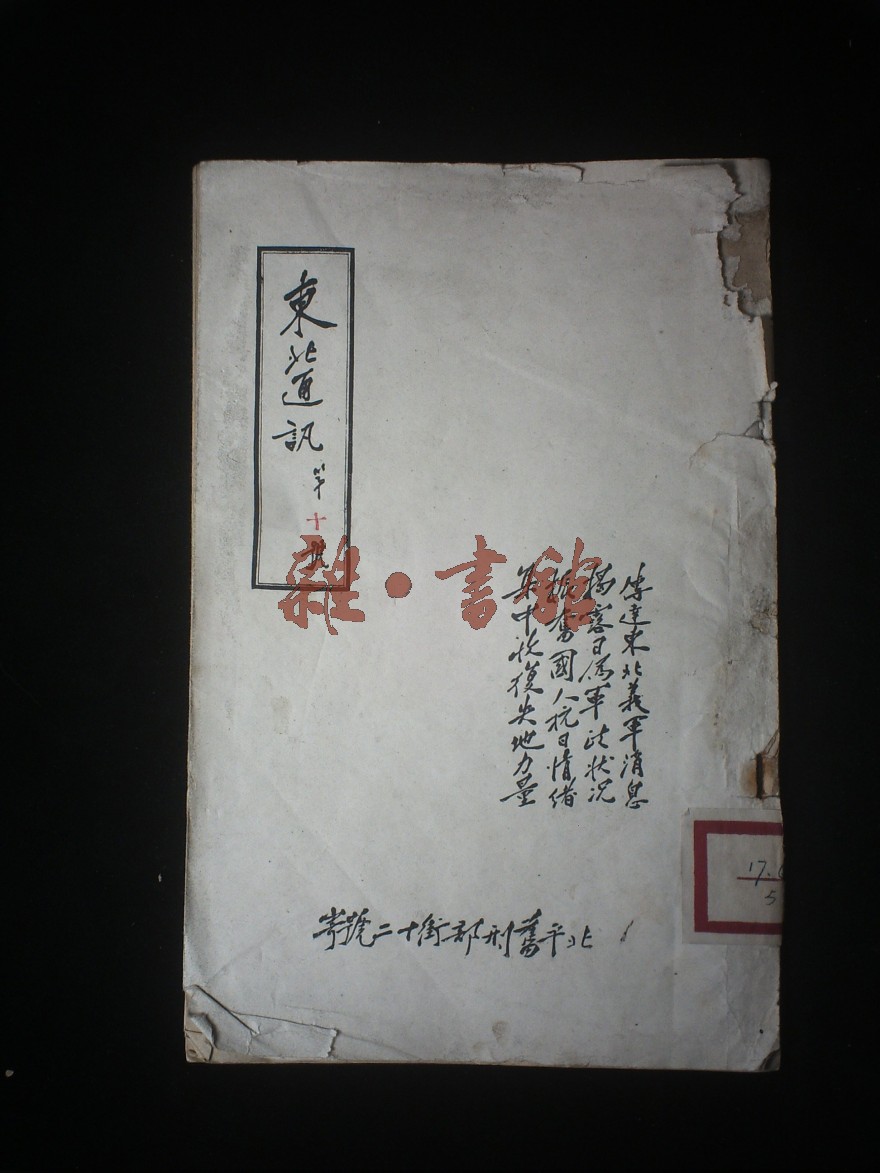 東北通訊 第十號
傳達東北義軍消息
揭露日偽軍政狀況
振奮國人抗日情緒
集中收復失地力量
北平舊刑部街十二號寄
雜·書館
17.
5